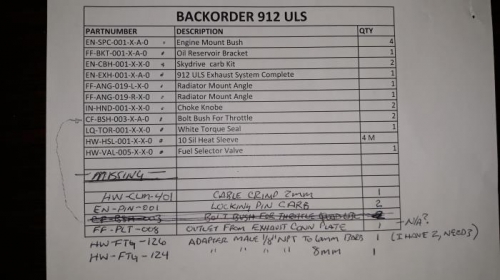 BACKORDER 912 ULS
PARTNUMBER DESCRIPTION QTY
EN-SPC-001-X-A-0 Engine Mount Bush 4
FF-BKT-001-X-A-0 Oil Reservoir Bracket 1
EN-CBH-001-X-X-0 Skydrive carb Kit 2
EN-EXH-001-X-A-0 912 ULS Exhaust System Complete 1
FF-ANG-019-L-X-0 Radiator Mount Angle 1
FF-ANG-019-R-X-0 Radiator Mount Angle 1
IN-HND-001-X-X-0 Choke Knobe 2
CF-BSH-003-X-A-0 Bolt Bush For Throttle 2
LQ-TOR-001-X-X-0 White Torque Seal 1
HW-HSL-001-X-X-0 10 Sil Heat Sleeve 4 M
HW-VAL-005-X-X-0 Fuel Selector Valve 1
MISSING
HW-CLM-401 CABLE CRIMP 2mm 1
EN-PIN-001 LOCKING PIN CARB 2
CF-BSH-003 BOLT BUSH FOR THROTTLE 2
FF-PLT-008 OUTLET FROM EXHAUST COWL PLATE 1 - N/A?
HW-FTG-126 ADAPTER MALE 1/8" NPT TO 6mm BARB 1 (I HAVE 2, NEED 3)
HW-FTG-124 " " " " 8mm 1